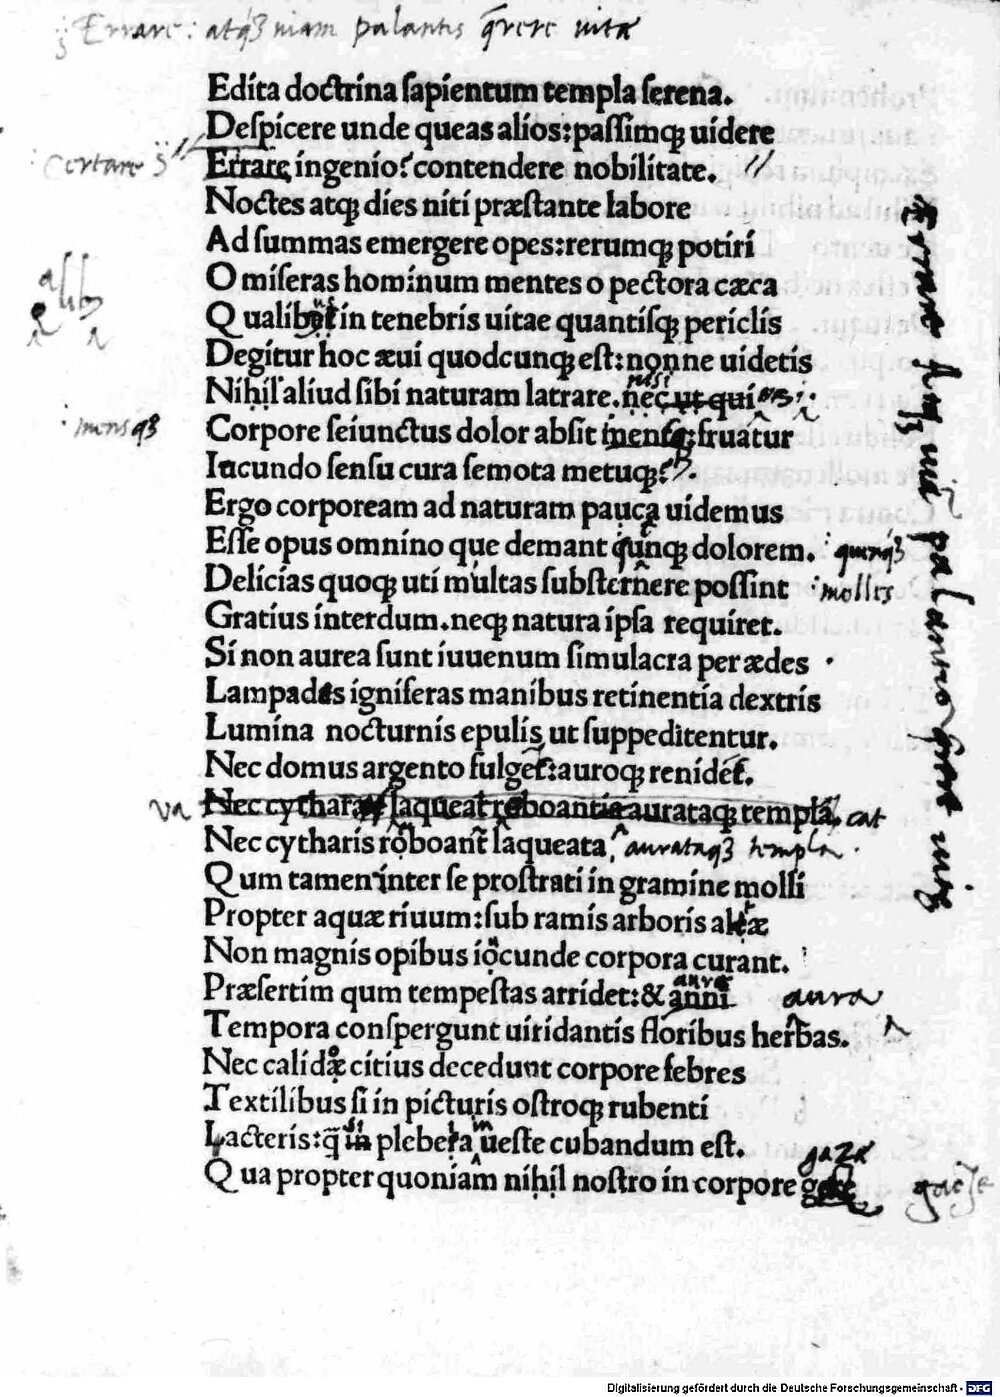 Errare: atqꝫ uiam palantis q̄rere uitæ
Edita doctrina ſapientum templa ſerena.
Deſpicere unde queas alios:paſſimqꝫ uidere
certare
Errare ingenio? contendere nobilitate.
Noctes atqꝫ dies niti præſtante labore
Ad ſummas emergere opes:rerumqꝫ potiri
O miſeras hominum mentes o pectora cæca
Qualibet in tenebris uitae quantiſqꝫ periclis
Degitur hoc æui quodcunqꝫ eſt:nonne uidetis
niſi
Nihil aliud ſibi naturam latrare.nec ut qui
mensqꝫ
Corpore ſeiunctus dolor abſit menſe:fruatur
Iucundo ſenſu cura ſemota metuqꝫ?
Ergo corpoream ad naturam pauca uidemus
Eſſe opus omnino que demant qūnqꝫ dolorem. quinqꝫ
Delicias quoqꝫ uti multas ſubſternere poſſint molles
Gratius interdum.neqꝫ natura ipſa requiret.
Si non aurea ſunt iuuenum ſimulacra per ædes
Lampades igniferas manibus retinentia dextris
Lumina nocturnis epulis ut ſuppeditentur.
Nec domus argento fulget:auroqꝫ renidet.
va Nec cythara laqueat reboantia aurataqꝫ templa, cat
Nec cytharis roboant laqueata, aurataqꝫ templa.
Qum tamen inter ſe proſtrati in gramine molli
Propter aquæ riuum:ſub ramis arboris altæ
Non magnis opibus iocunde corpora curant.
auræ
Præſertim qum tempeſtas arridet:& anni aura
Tempora conſpergunt uiridantis floribus herbas.
Nec calidæ citius decedunt corpore febres
Textilibus ſi in picturis oſtroqꝫ rubenti
Lacteris:q̄ in plebeia ueſte cubandum eſt.
gaza
Qua propter quoniam nihil noſtro in corpore
Errare Atqꝫ uiā palantis uitę